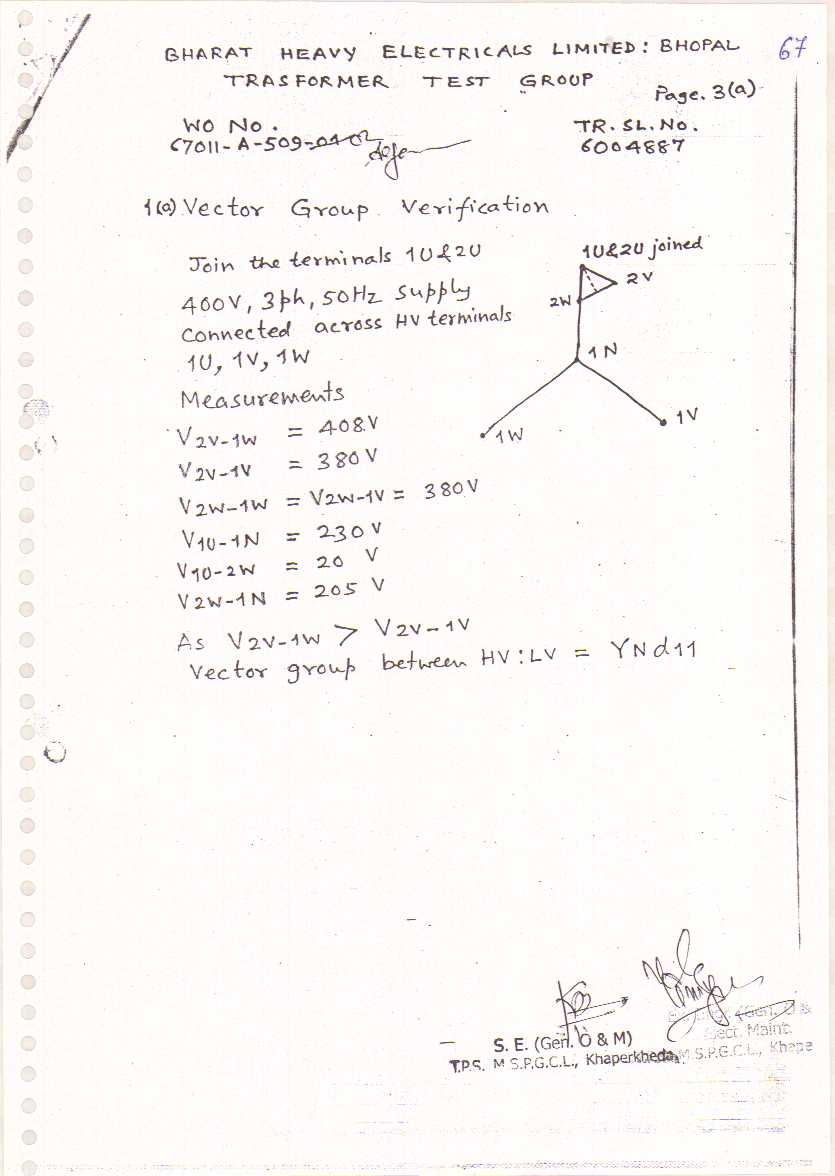 BHARAT HEAVY ELECTRICALS LIMITED: BHOPAL
67
TRASFORMER TEST GROUP
Page. 3(a)
WO No.
TR. SL. No.
67011-A-509-
6004887
1(a) Vector Group Verification
Join the terminals 1U & 2U
400V, 3ph, 50Hz supply
Connected across HV terminals
1U, 1V, 1W
1U&2U joined
2V
2W
1N
1W
1V
Measurements
V2V-1W = 408V
V2V-1V = 380V
V2W-1W = V2W-1V = 380V
V1U-1N = 230V
V1U-2W = 20 V
V2W-1N = 205 V
As V2V-1W > V2V-1V
Vector group between HV:LV = YNd11
S. E. (Gen. O & M)
T.P.S. M S.P.G.C.L., Khaperkheda
(Gen. O &
Elect. Maint.
M.S.P.G.C.L., Khape